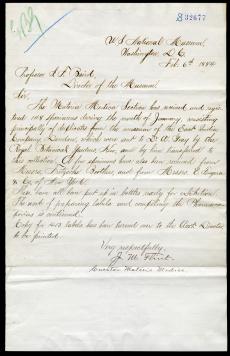 832677
U.S. National Museum,
Washington, D.C.
Feb. 6th 1884
Professor S. F. Baird,
Director of the Museum.
Sir:
The Materia Medica Section has received and regis-
tered 108 specimens during the month of January, consisting
principally of duplicates from the museum of the East India
Company, London, which were sent to Dr. A. Gray by the
Royal Botanical Gardens, Kew, and by him transferred to
this collection. A few specimens have also been received from
Messrs. Fritzsche Brothers, and from Messrs.
& Co. of New York.
These have all been put up in bottles ready for exhibition.
The work of preparing labels and compiling the
is continued.
Copy for 403 labels has been turned over to the Asst. Director
to be printed.
Very respectfully,
J. M. Flint.
Curator Materia Medica.